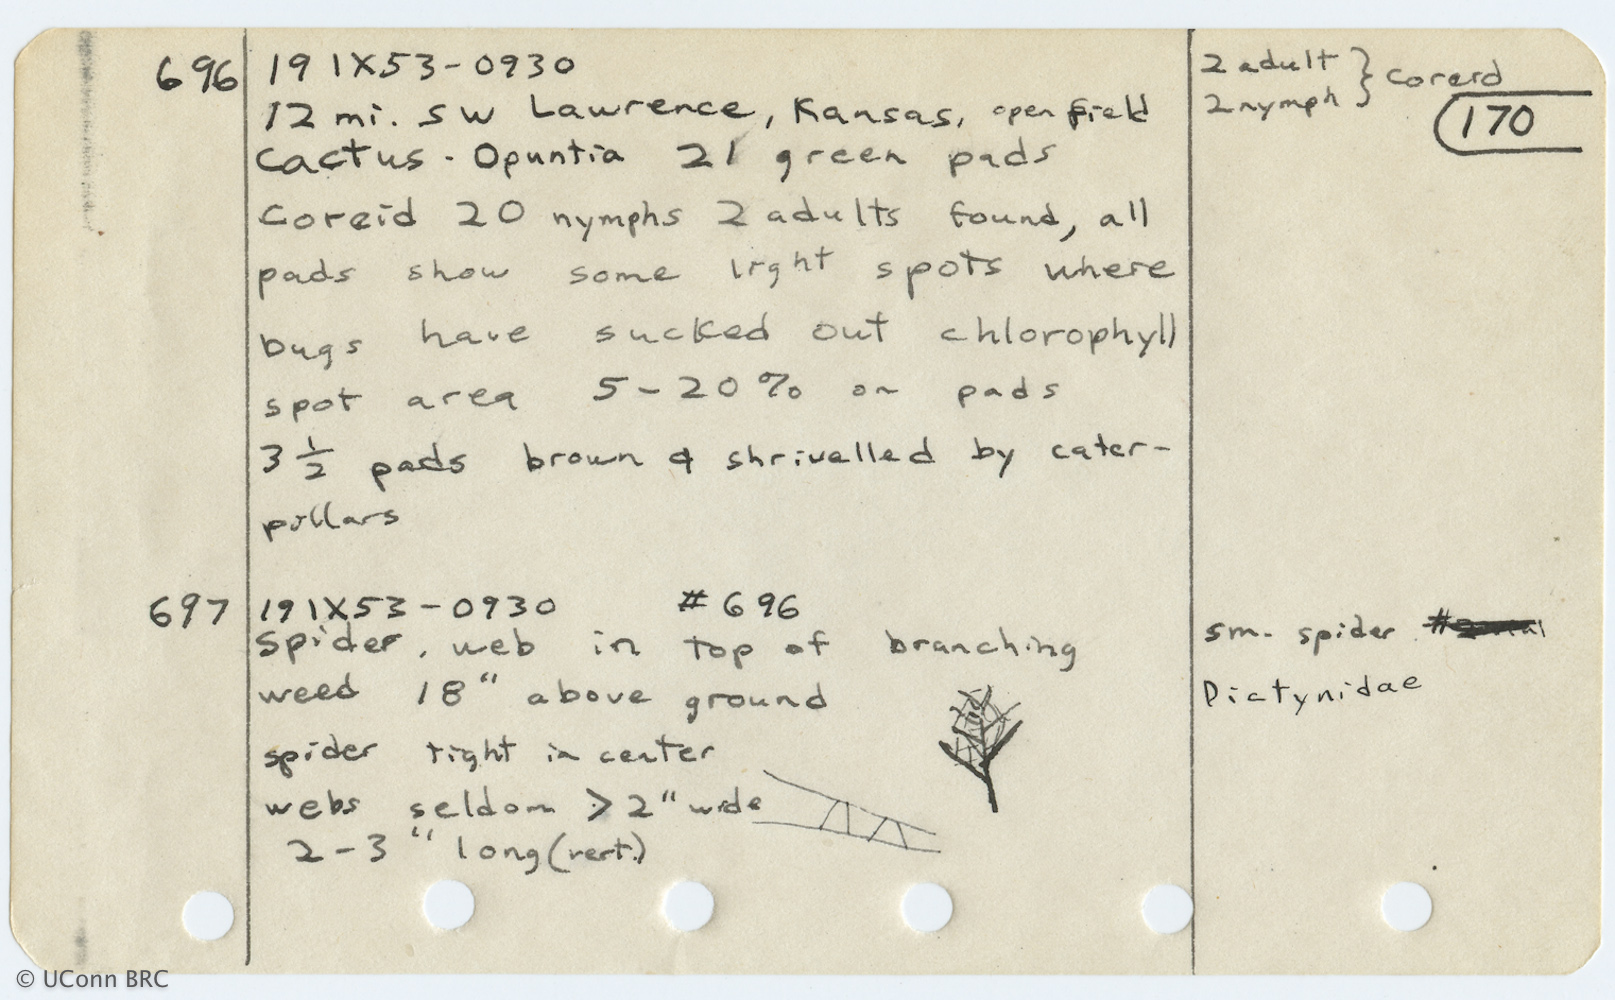 696 19 IX53-0930
12 mi. SW Lawrence, Kansas, open field
cactus - Opuntia 21 green pads
Coreid 20 nymphs 2 adults found, all
pads show some light spots where
bugs have sucked out chlorophyll
spot area 5-20% on pads
3 1/2 pads brown & shrivelled by cater-
pillars
2 adult } Coreid
2 nymph
170
697 19 IX53-0930 #696
spider, web in top of branching
weed 18" above ground
spider right in center
webs seldom > 2" wide
2-3" long (vert.)
sm. spider #
Dictynidae
© UConn BRC